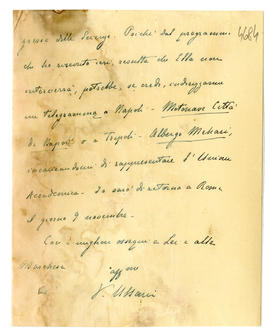 4684
presso delle Scienze. Poiché dal programma
che ho ricevuto ieri, risulta che Ella non
interverrà, potrebbe, se crede, indirizzarmi
un telegramma a Napoli - Motonave Città
di Napoli o a Tripoli - Albergo Mehari,
incaricandomi di rappresentare l'Unione
Accademica. Io sarò di ritorno a Roma
il giorno 9 novembre.
Con i migliori ossequi a Lei e alla
Marchesa
aff mo
V. Ussani